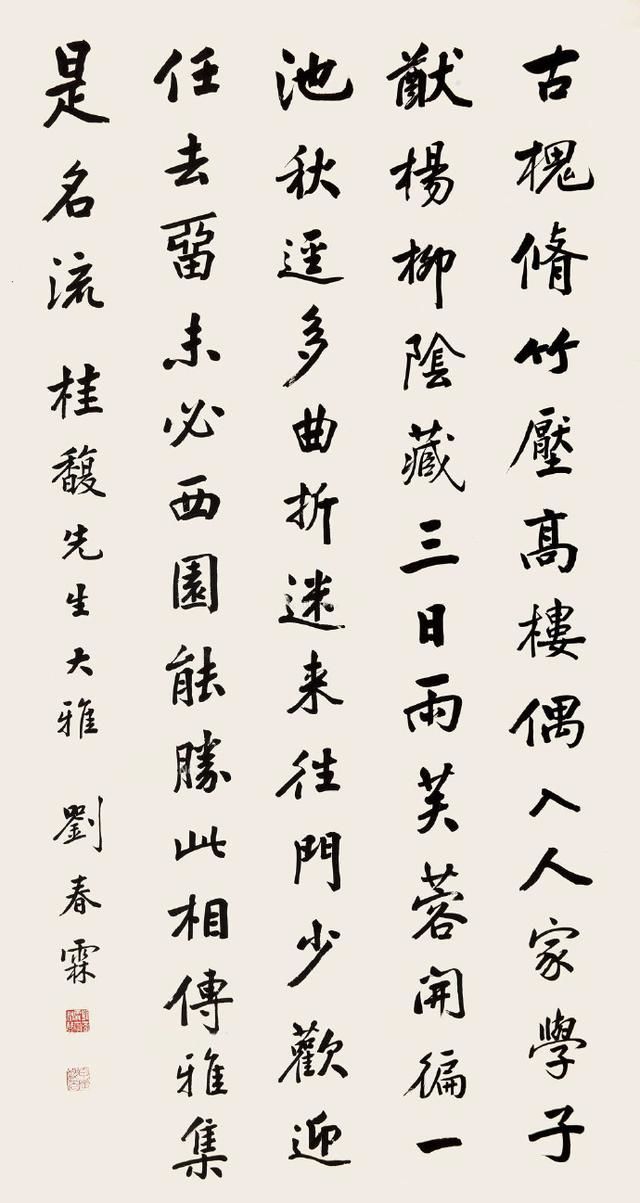 古槐脩竹壓髙樓偶入人家學子
猷楊柳陰藏三日雨芙蓉開徧一
池秋逕多曲折迷来往門少歡迎
任去留未必西園能勝此相傳雅集
是名流 桂馥先生大雅 劉春霖